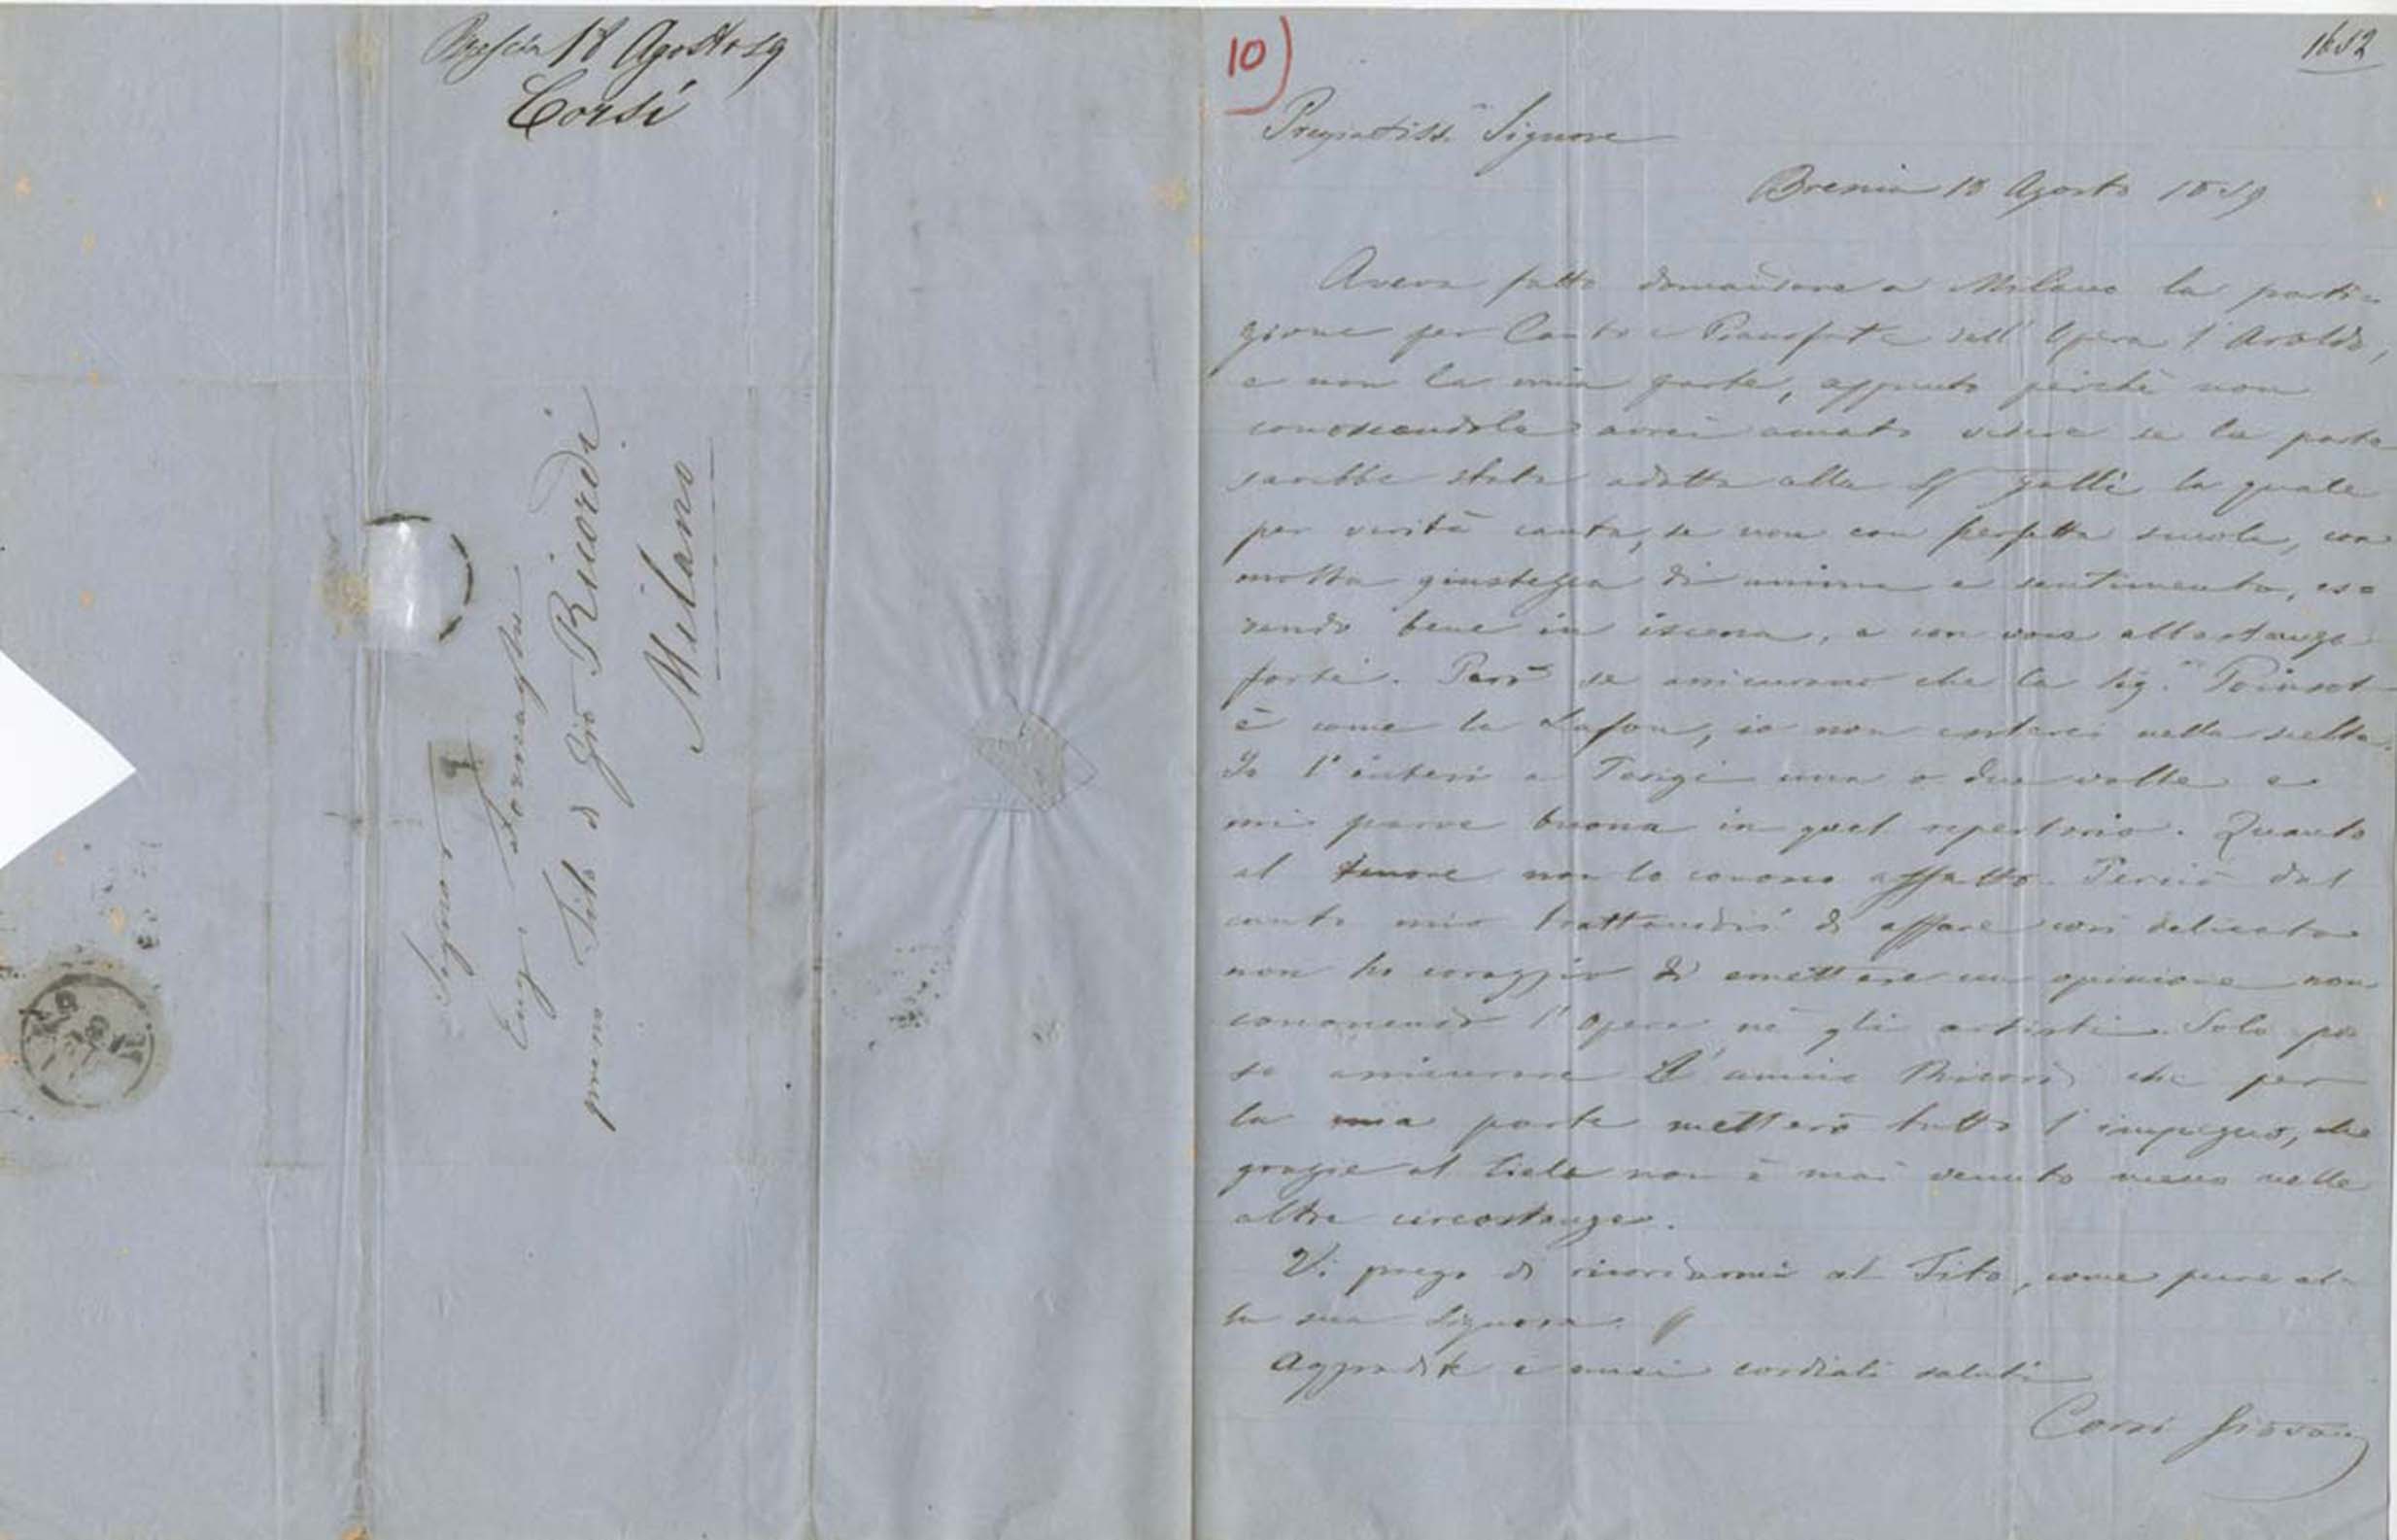 Brescia 18 Agosto 59
Corsi
Signor
Eug. Tornaghi
presso Tito di Gio Ricordi
Milano
10)
1652
Pregiatiss. Signore
Brescia 18 Agosto 1859
Aveva fatto domandare a Milano la parti=
zione per Canto e Pianoforte dell'Opera l'Aroldo,
e non la mia parte, appunto perchè non
conoscendola avrei amato vedere se la parte
sarebbe stata adatta alla Sig Galli la quale
per verità canta, se non con perfetta scuola, con
molta giustezza di anima e sentimento, es=
sendo bene in iscena, e con voce abbastanza
forte. Però se assicurano che la Sig.ra Poinsot
è come la Lafon, io non esiterei nella scelta.
Io l'intesi a Parigi una o due volte e
mi parve buona in quel repertorio. Quanto
al tenore non lo conosco affatto. Perciò dal
canto mio trattandosi di affare così delicato
non ho coraggio di emettere un opinione non
conoscendo l'Opera nè gli artisti. Solo pos
so assicurare l'amico Ricordi che per
la mia parte metterò tutto l'impegno, che
grazie al Cielo non è mai venuto meno nelle
altre circostanze.
Vi prego di ricordarmi al Tito, come pure al=
la sua Signora.
Aggradite i miei cordiali saluti
Corsi Giovan